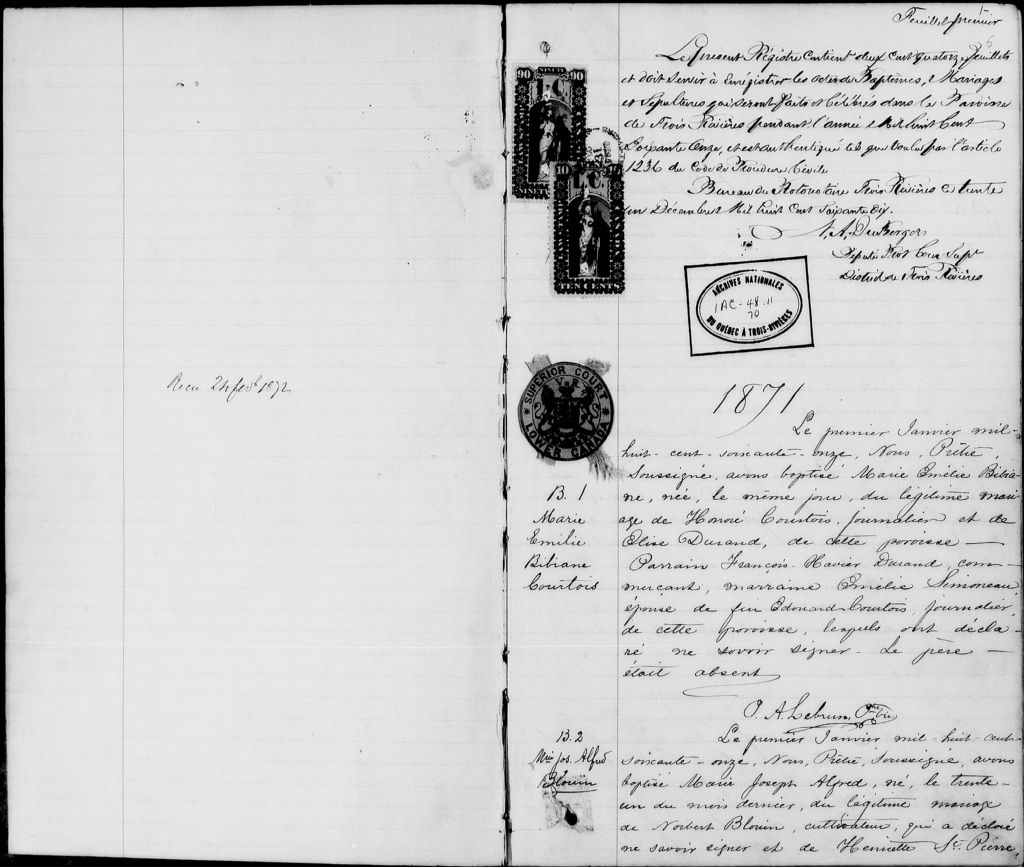 Recu 24 fevr 1872
Feuillet premier
Le présent Régistre contient deux cent quatorze feuillets
et doit servir à Enrégistrer les actes de Baptêmes, Mariages
et Sépultures qui seront faits et Célébrés dans la Paroisse
de Trois Rivières pendant l'année Mil huit Cent
Soixante Onze, et est authentiqué tel que voulu par l'article
1236 du Code de Procédure Civile
Bureau du Protonotaire Trois Rivières ce trente
un Décembre Mil huit Cent Soixante dix.
Député Prot Cour Supr
District de Trois Rivières
90 NINETY 90
L.C.
NINETY
10 10
L.C.
TEN CENTS
ARCHIVES NATIONALES
1AC-48-11
70
DU QUÉBEC À TROIS-RIVIÈRES
SUPERIOR COURT
V R
LOWER CANADA
1871
B. 1
Marie
Emilie
Bibiane
Courtois
Le premier Janvier mil-
huit-cent-soixante-onze, Nous, Prêtre,
Soussigné, avons baptisé Marie Emélie Bibia-
ne, née, le même jour, du légitime mari-
age de Honoré Courtois, journalier et de
Elise Durand, de cette paroisse —
Parrain François-Xavier Durand, com-
merçant, marraine Emélie Simoneau,
épouse de feu Edouard Courtois, journalier,
de cette paroisse, lesquels ont décla-
ré ne savoir signer - Le père —
était absent
P. A. Lebrun, Ptre
B. 2
Mie Jos. Alfred
Blouin
Le premier Janvier mil-huit-cent-
soixante-onze, Nous, Prêtre, Soussigné, avons
baptisé Marie Joseph Alfred, né, le trente-
un du mois dernier, du légitime mariage
de Norbert Blouin, cultivateur, qui a déclaré
ne savoir signer et de Henriette St. Pierre,